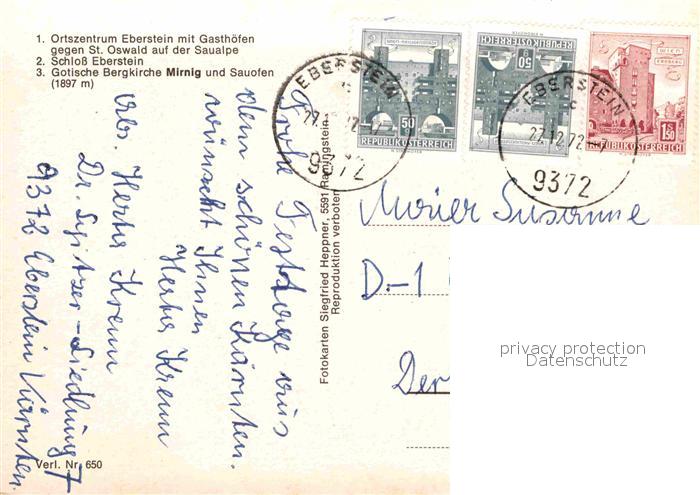 1. Ortszentrum Eberstein mit Gasthöfen
gegen St. Oswald auf der Saualpe
2. Schloß Eberstein
3. Gotische Bergkirche Mirnig und Sauofen
(1897 m)
Frohe Festtage aus
dem schönen Kärnten.
wünscht Ihnen
Herta Krenn
Abs. Herta Krenn
Dr. Spitzer-Siedlung 7
9372 Eberstein Kärnten.
Verl. Nr. 650
Fotokarten Siegfried Heppner, 5591 Ramingstein
Reproduktion verboten
50
REPUBLIK ÖSTERREICH
50
REPUBLIK ÖSTERREICH
WIEN
ERDBERG
1.50
REPUBLIK ÖSTERREICH
EBERSTEIN
27.12.72
9372
EBERSTEIN
27.12.72
9372
Susanne
D-1
Der
privacy protection
Datenschutz